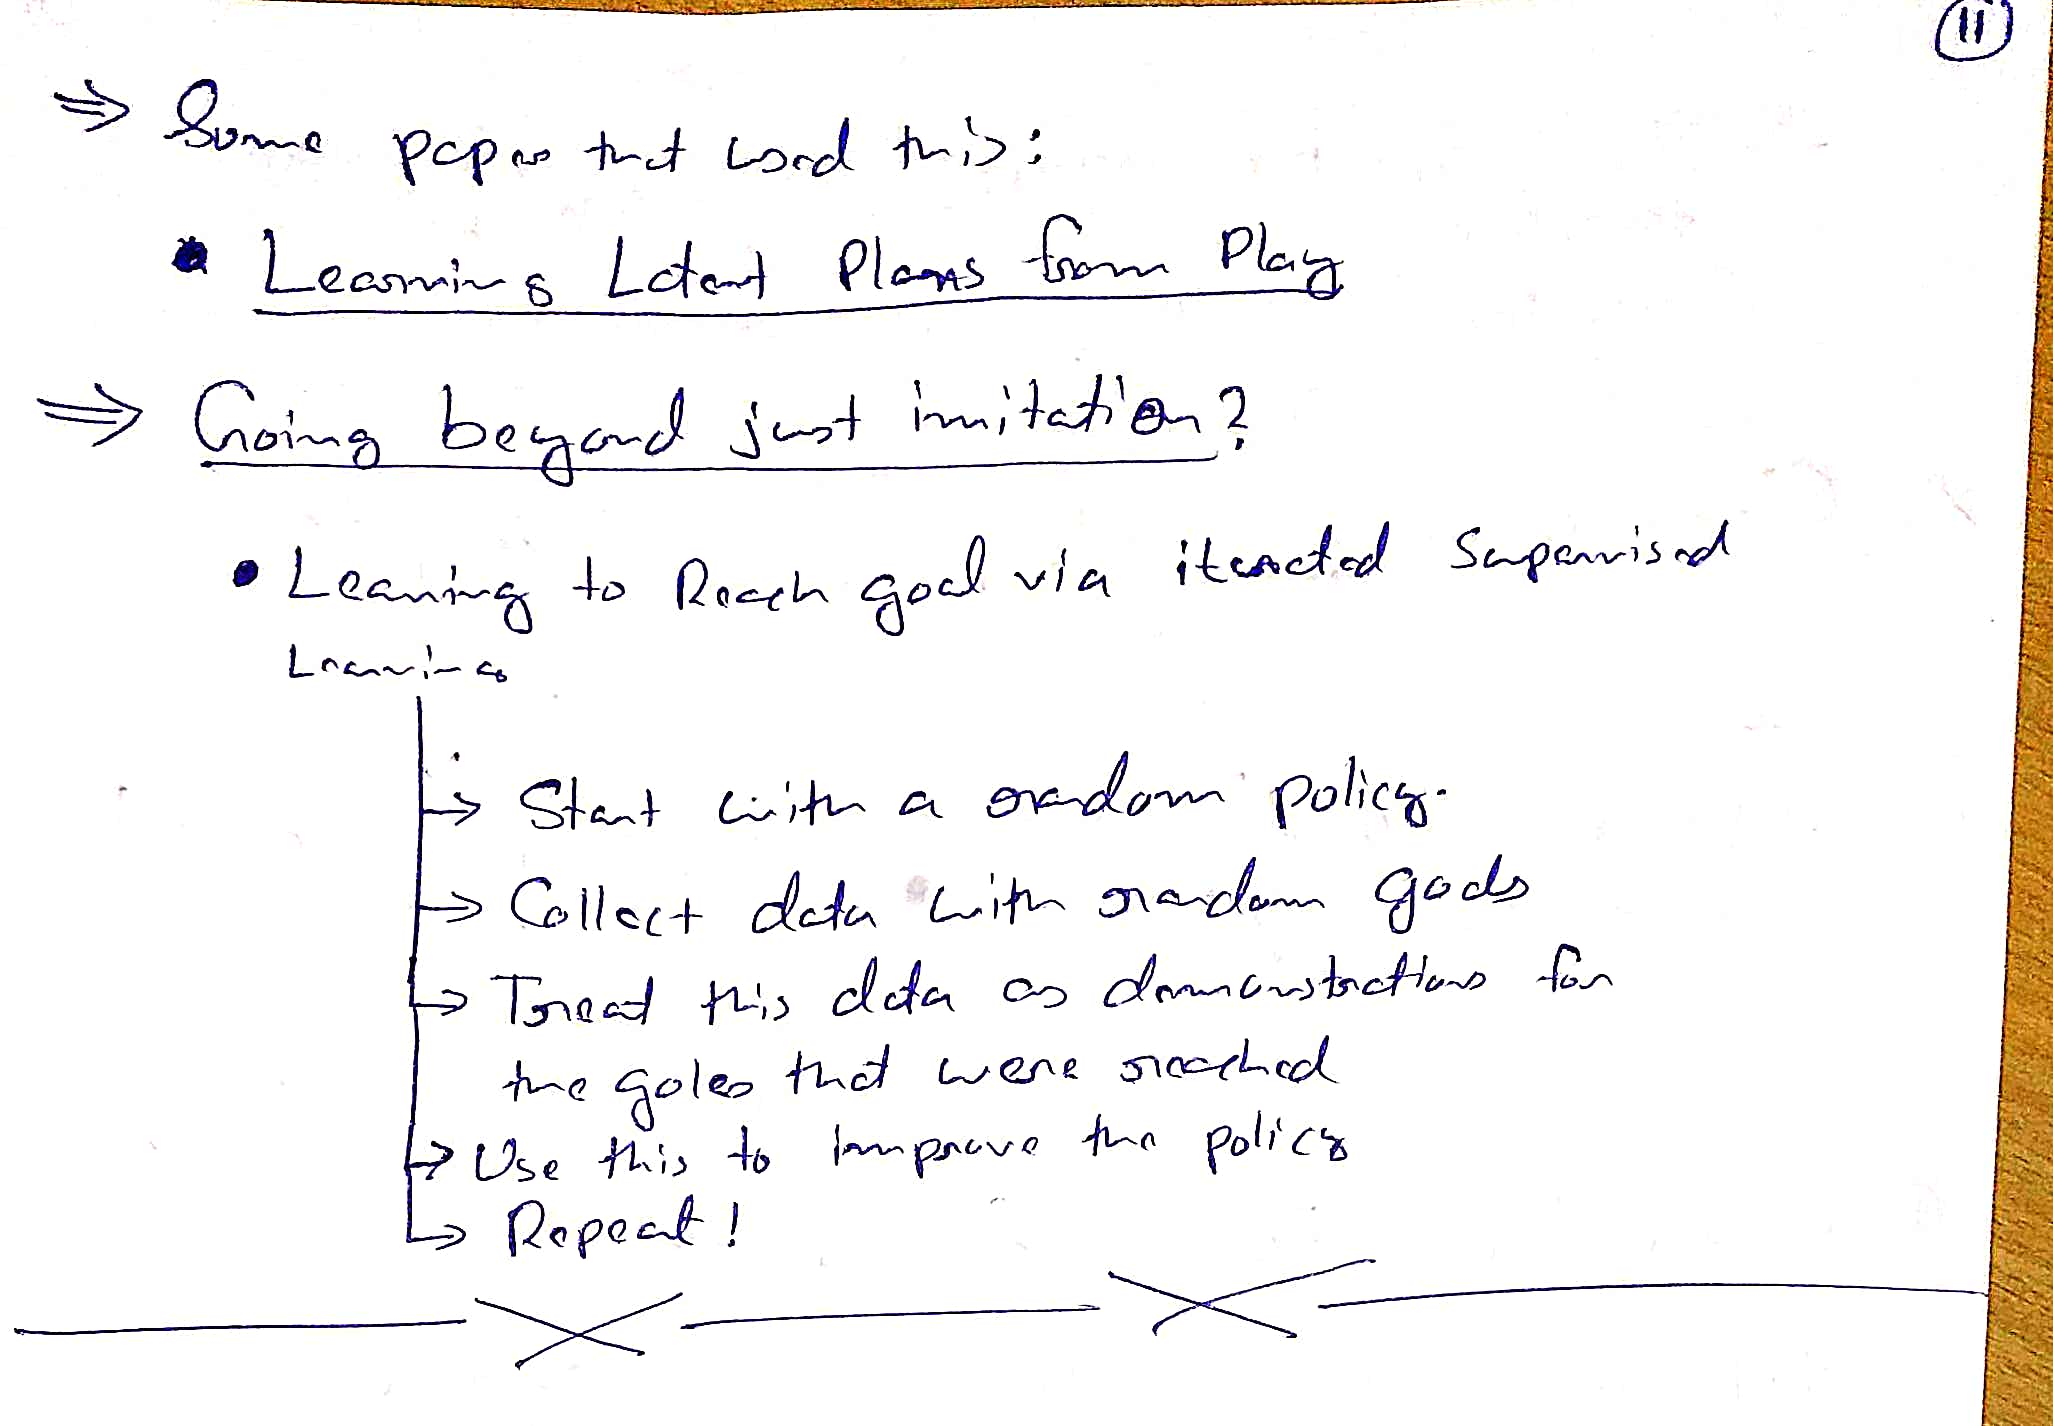 11
⇒ Some papers that used this:
• Learning Latent Plans from Play
⇒ Going beyond just imitation?
• Learning to Reach goal via iterated Supervised
Learning
→ Start with a random policy.
→ Collect data with random goals
→ Treat this data as demonstrations for
the goles that were reached
→ Use this to improve the policy
→ Repeat!